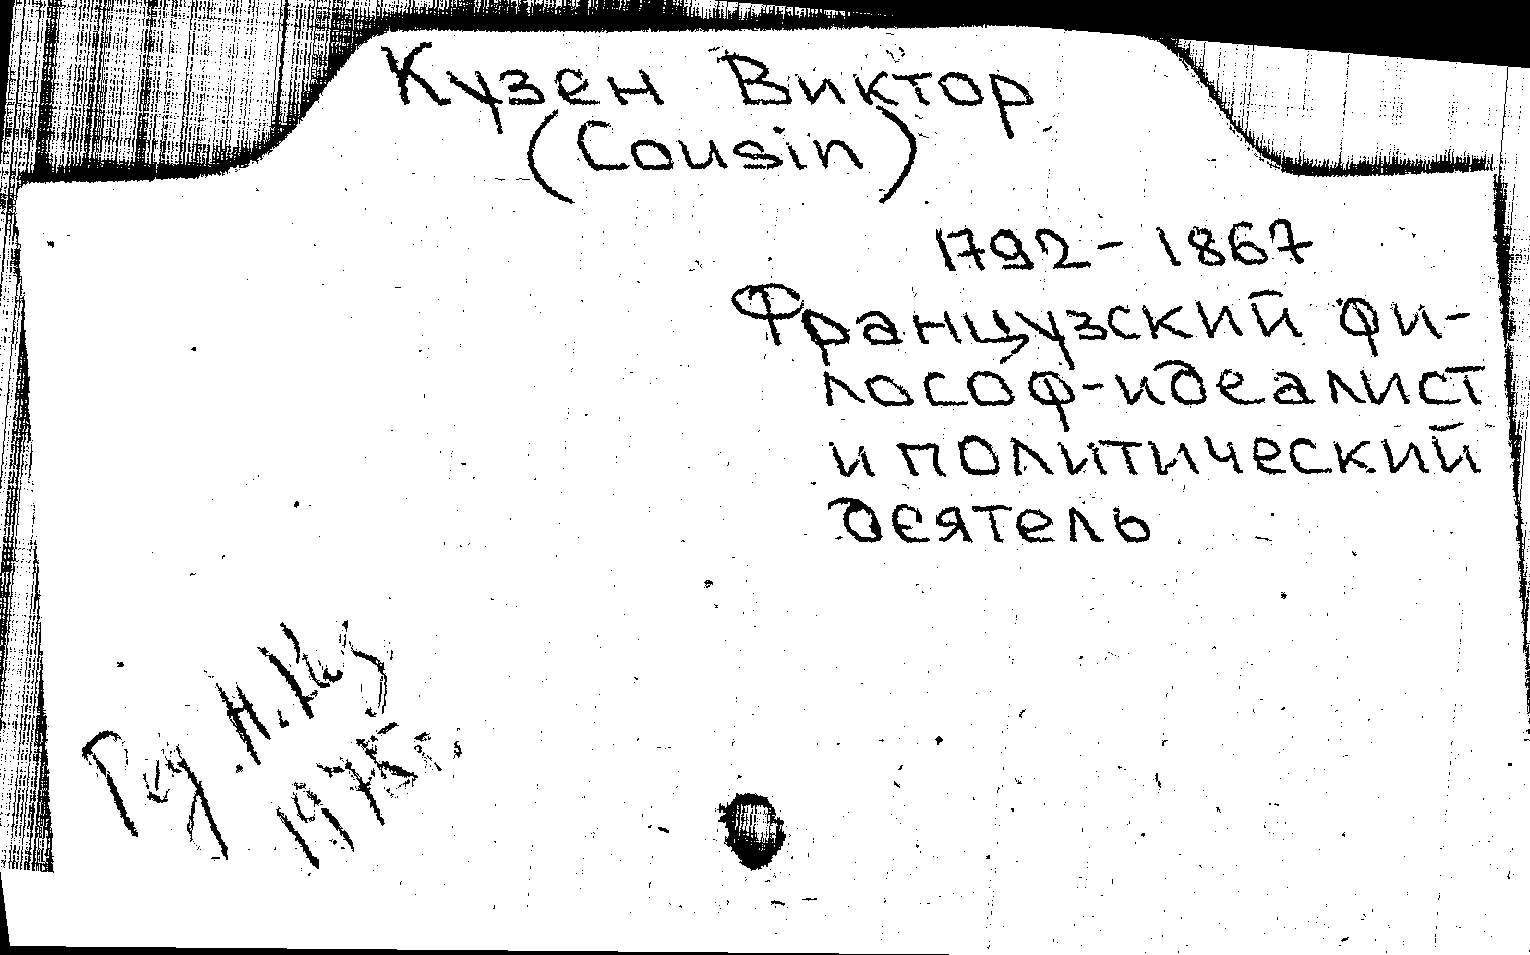 Кузен Виктор
(Cousin)
1792-1867
Французский фи-
лософ-идеалист
и политический
деятель
1975г.